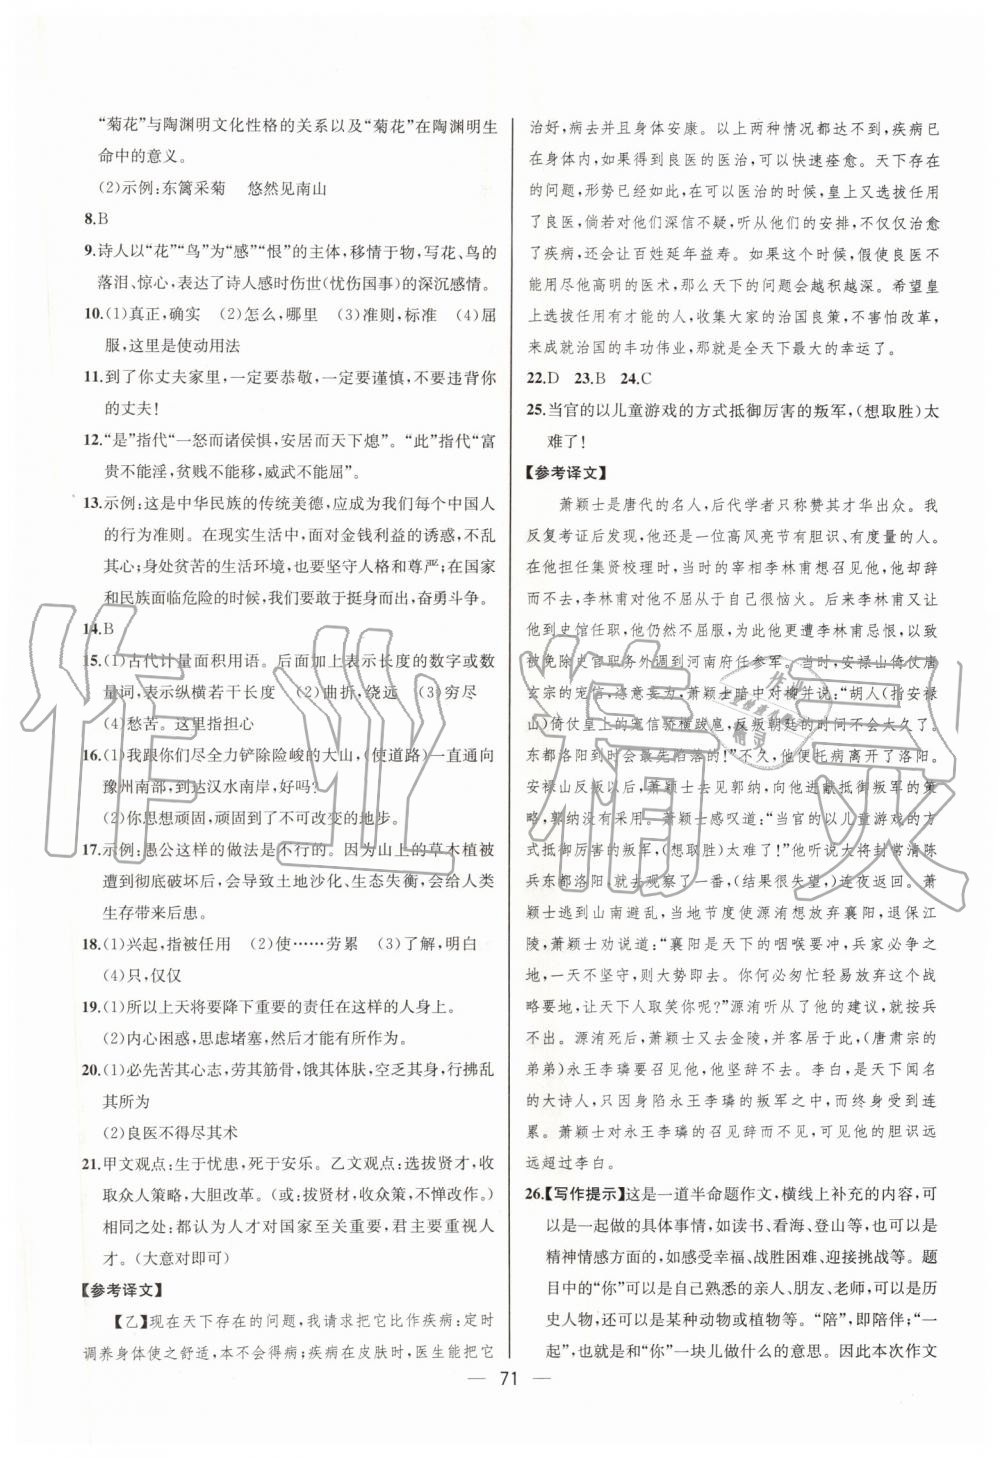 “菊花”与陶渊明文化性格的关系以及“菊花”在陶渊明生
命中的意义。
(2)示例:东篱采菊　悠然见南山
8.B
9.诗人以“花”“鸟”为“感”“恨”的主体,移情于物,写花、鸟的
落泪、惊心,表达了诗人感时伤世(忧伤国事)的深沉感情。
10.(1)真正,确实　(2)怎么,哪里　(3)准则,标准　(4)屈
服,这里是使动用法
11.到了你丈夫家里,一定要恭敬,一定要谨慎,不要违背你
的丈夫!
12.“是”指代“一怒而诸侯惧,安居而天下熄”。“此”指代“富
贵不能淫,贫贱不能移,威武不能屈”。
13.示例:这是中华民族的传统美德,应成为我们每个中国人
的行为准则。在现实生活中,面对金钱利益的诱惑,不乱
其心;身处贫苦的生活环境,也要坚守人格和尊严;在国家
和民族面临危险的时候,我们要敢于挺身而出,奋勇斗争。
14.B
15.(1)古代计量面积用语。后面加上表示长度的数字或数
量词,表示纵横若干长度　(2)曲折,绕远　(3)穷尽
(4)愁苦。这里指担心
16.(1)我跟你们尽全力铲除险峻的大山,(使道路)一直通向
豫州南部,到达汉水南岸,好吗?
(2)你思想顽固,顽固到了不可改变的地步。
17.示例:愚公这样的做法是不行的。因为山上的草木植被
遭到彻底破坏后,会导致土地沙化、生态失衡,会给人类
生存带来后患。
18.(1)兴起,指被任用　(2)使……劳累　(3)了解,明白
(4)只,仅仅
19.(1)所以上天将要降下重要的责任在这样的人身上。
(2)内心困惑,思虑堵塞,然后才能有所作为。
20.(1)必先苦其心志,劳其筋骨,饿其体肤,空乏其身,行拂乱
其所为
(2)良医不得尽其术
21.甲文观点:生于忧患,死于安乐。乙文观点:选拔贤才,收
取众人策略,大胆改革。(或:拔贤材,收众策,不惮改作。)
相同之处:都认为人才对国家至关重要,君主要重视人
才。(大意对即可)
【参考译文】
【乙】现在天下存在的问题,我请求把它比作疾病:定时
调养身体使之舒适,本不会得病;疾病在皮肤时,医生能把它
治好,病去并且身体安康。以上两种情况都达不到,疾病已
在身体内,如果得到良医的医治,可以快速痊愈。天下存在
的问题,形势已经如此,还在可以医治的时候,皇上又选拔任用
了良医,倘若对他们深信不疑,听从他们的安排,不仅仅治愈
了疾病,还会让百姓延年益寿。如果这个时候,使良医不
能用尽他高明的医术,那么天下的问题会越积越深。希望皇
上选拔任用有才能的人,收集大家的治国良策,不害怕改革,
来成就治国的丰功伟业,那就是全天下最大的幸运了。
22.D　23.B　24.C
25.当官的以儿童游戏的方式抵御厉害的叛军,(想取胜)太
难了!
【参考译文】
萧颖士是唐代的名人,后代学者只称赞其才华出众。我
反复考证后发现,他还是一位高风亮节有胆识、有度量的人。
在他担任集贤校理时,当时的宰相李林甫想召见他,他却辞
而不去,李林甫对他不屈从于自己很恼火。后来李林甫又让
他到史馆任职,他仍然不屈服,为此他更遭李林甫忌恨,以致
被免除史官职务外调到河南府任参军。当时,安禄山倚仗唐
玄宗的宠信,恣意妄为,萧颖士暗中对柳并说:“胡人(指安禄
山)倚仗皇上的宠信骄横跋扈,反叛朝廷的时间不会太久了。
东都洛阳到时会是最先陷落的!”不久,他便托病离开了洛阳。
安禄山反叛以后,萧颖士去见郭纳,对他进献抵御叛军的策
略,郭纳没有采用。萧颖士感叹道:“当官的以儿童游戏的方
式抵御厉害的叛军,(想取胜)太难了!”他听说大将封常清陈
兵东都洛阳,就去观察了一番,(结果很失望,)连夜返回。萧
颖士逃到山南避乱,当地节度使源洧想放弃襄阳,退保江
陵,萧颖士劝说道:“襄阳是天下的咽喉要冲,兵家必争之
地,一天不坚守,则大势即去。你何必匆忙轻易放弃这个战
略要地,让天下人取笑你呢?”源洧听从了他的建议,就按兵
不出。源洧死后,萧颖士又去金陵,(唐肃宗的
弟弟)永王李璘要召见他,他坚辞不见。李白,是天下闻名
的大诗人,只因身陷永王李璘的叛军之中,而终身受到连
累。萧颖士对永王李璘的召见辞而不见,他的胆识远
远超过李白。
26.【写作提示】这是一道半命题作文,横线上补充的内容,可
以是一起做的具体事情,如读书、看海、登山等,也可以是
精神情感方面的,如感受幸福、战胜困难、迎接挑战等。题
目中的“你”可以是自己熟悉的亲人、朋友、老师,可以是历
史人物,还可以是某种动物或植物。“陪”,即陪伴;“一
起”,也就是和“你”一块儿做什么的意思。因此本次作文
— 71 —
作业精灵